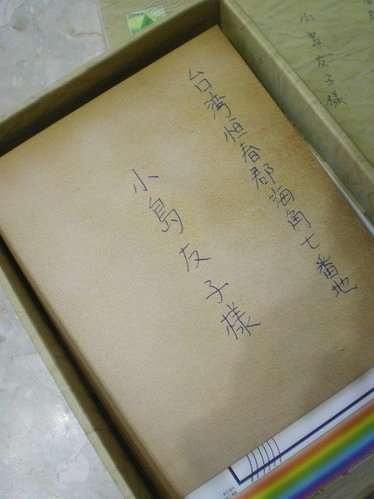 台湾恒春郡海角七番地
小島友子様
小島友子様